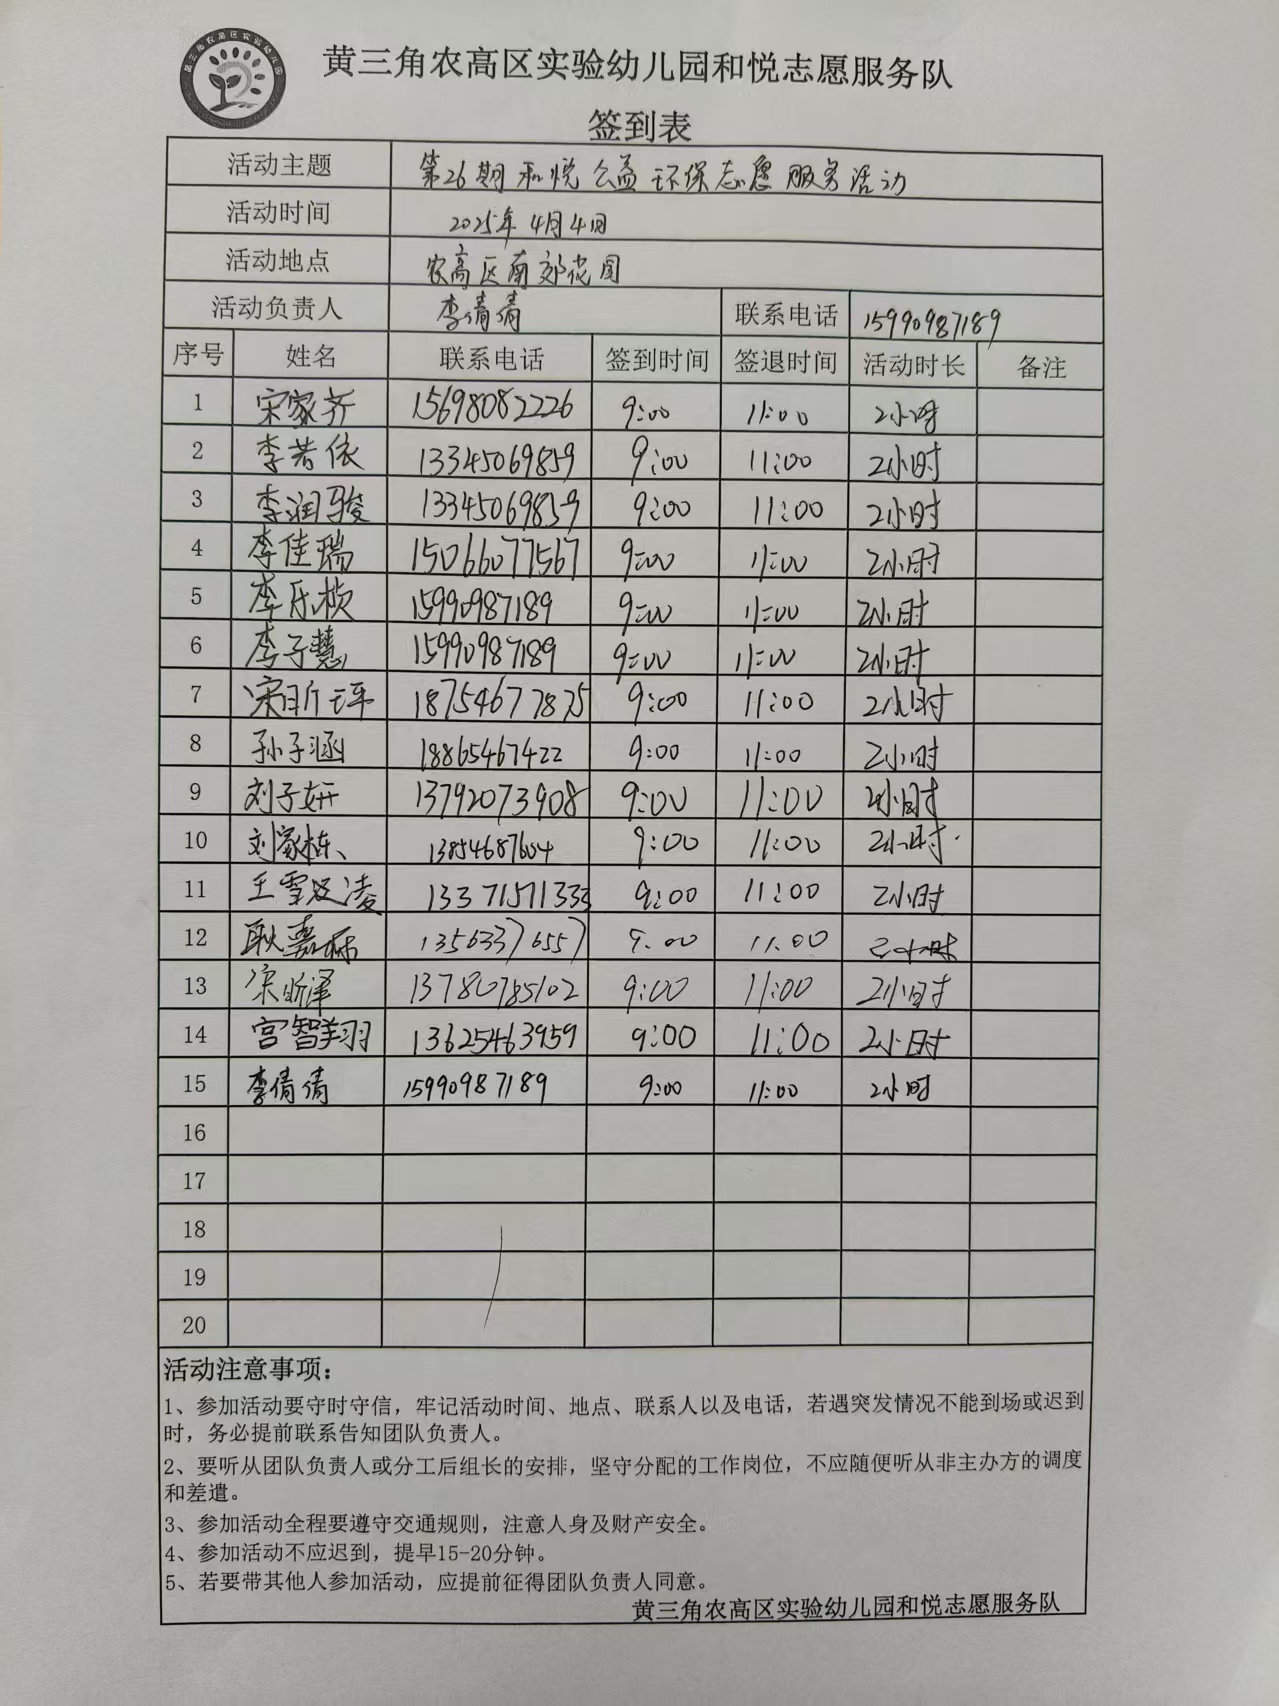 黄三角农高区实验幼儿园
黄三角农高区实验幼儿园和悦志愿服务队
签到表
活动主题 第26期和悦公益环保志愿服务活动
活动时间 2025年4月4日
活动地点 农高区南郊花园
活动负责人 李倩倩 联系电话 15990987189
序号 姓名 联系电话 签到时间 签退时间 活动时长 备注
1 宋家齐 15698082226 9:00 11:00 2小时
2 李若依 13345069859 9:00 11:00 2小时
3 李润骏 13345069859 9:00 11:00 2小时
4 李佳瑞 15066077567 9:00 11:00 2小时
5 李乐桢 15990987189 9:00 11:00 2小时
6 李子慧 15990987189 9:00 11:00 2小时
7 宋昕 18754677875 9:00 11:00 2小时
8 孙子涵 18865467422 9:00 11:00 2小时
9 刘子妍 13792073908 9:00 11:00 2小时
10 刘家栋 13854687604 9:00 11:00 2小时
11 王雪凌 13371571333 9:00 11:00 2小时
12 耿嘉 13563376557 9:00 11:00 2小时
13 宋昕泽 13780785102 9:00 11:00 2小时
14 宫智翔 13625463959 9:00 11:00 2小时
15 李倩倩 15990987189 9:00 11:00 2小时
16
17
18
19
20
活动注意事项：
1、参加活动要守时守信，牢记活动时间、地点、联系人以及电话，若遇突发情况不能到场或迟到
时，务必提前联系告知团队负责人。
2、要听从团队负责人或分工后组长的安排，坚守分配的工作岗位，不应随便听从非主办方的调度
和差遣。
3、参加活动全程要遵守交通规则，注意人身及财产安全。
4、参加活动不应迟到，提早15-20分钟。
5、若要带其他人参加活动，应提前征得团队负责人同意。
黄三角农高区实验幼儿园和悦志愿服务队